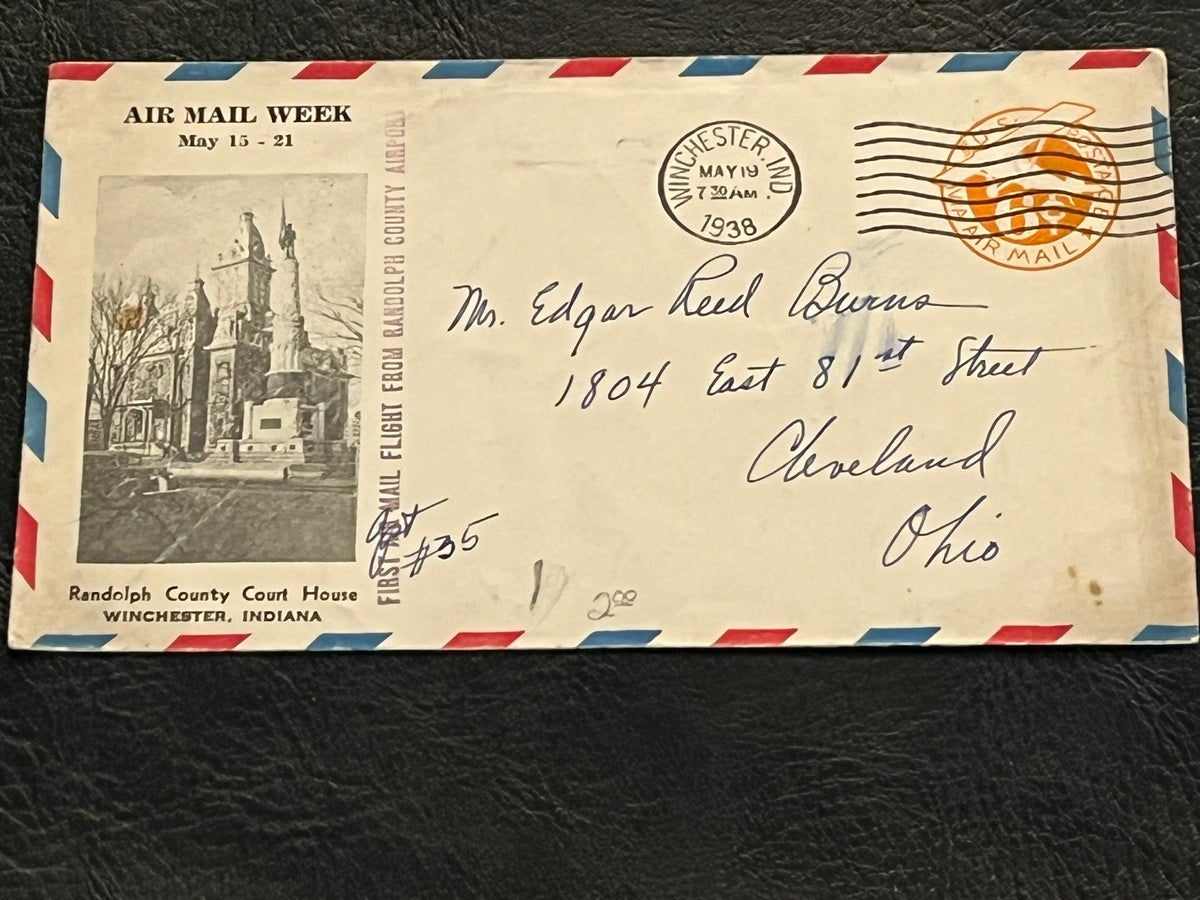 AIR MAIL WEEK
May 15 - 21
FIRST AIR MAIL FLIGHT FROM RANDOLPH COUNTY AIRPORT
WINCHESTER, IND.
MAY 19
7 30 AM
1938
U.S. POSTAGE
6¢
VIA AIR MAIL
Mr. Edgar Reed Burns
1804 East 81st Street
Cleveland
Ohio
#35
2.00
Randolph County Court House
WINCHESTER, INDIANA